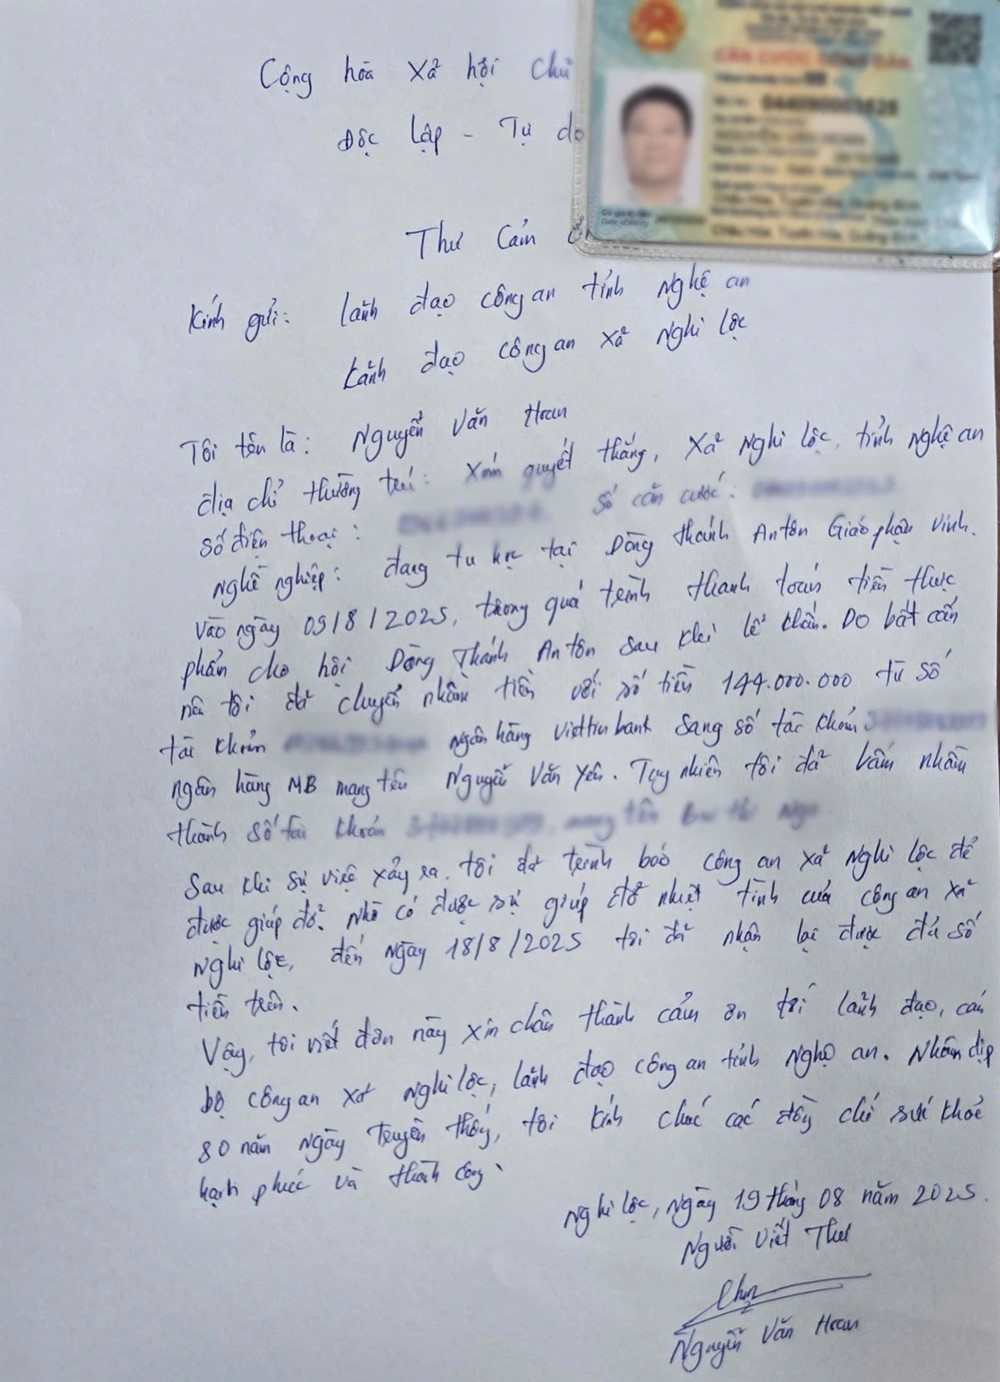 Cộng hòa Xã hội Chủ
Độc lập - Tự do
CĂN CƯỚC CÔNG DÂN
Thư Cảm
Kính gửi: lãnh đạo công an tỉnh Nghệ an
Lãnh đạo công an xã Nghi Lộc
Tôi tên là: Nguyễn Văn Hoan
địa chỉ thường trú: xóm quyết thắng, Xã Nghi Lộc, tỉnh Nghệ an
số điện thoại: Số căn cước:
Nghề nghiệp: đang tu học tại Dòng thánh Antôn Giáo phận Vinh.
Vào ngày 09/8/2025, trong quá trình thanh toán tiền thực
phẩn cho hội Dòng Thánh Antôn sau khi lễ khấn. Do bất cẩn
nên tôi đã chuyển nhầm tiền với số tiền 144.000.000 từ số
tài khoản ngân hàng Viettinbank sang số tài khoản
ngân hàng MB mang tên Nguyễn Văn Yên. Tuy nhiên tôi đã bấm nhầm
thành số tài khoản mang tên
Sau khi sự việc xảy ra. tôi đã trình báo công an xã Nghi Lộc để
được giúp đỡ. Nhờ có được sự giúp đỡ nhiệt tình của công an xã
Nghi Lộc, đến ngày 18/8/2025 tôi đã nhận lại được đủ số
tiền trên.
Vậy, tôi viết đơn này xin chân thành cảm ơn tới lãnh đạo, cán
bộ công an xã Nghi Lộc, lãnh đạo công an tỉnh Nghệ an. Nhân dịp
80 năm ngày truyền thống, tôi kính chúc các đồng chí sức khoẻ
hạnh phúc và thành công.
Nghi Lộc, ngày 19 tháng 08 năm 2025.
Người Viết Thư
Nguyễn Văn Hoan